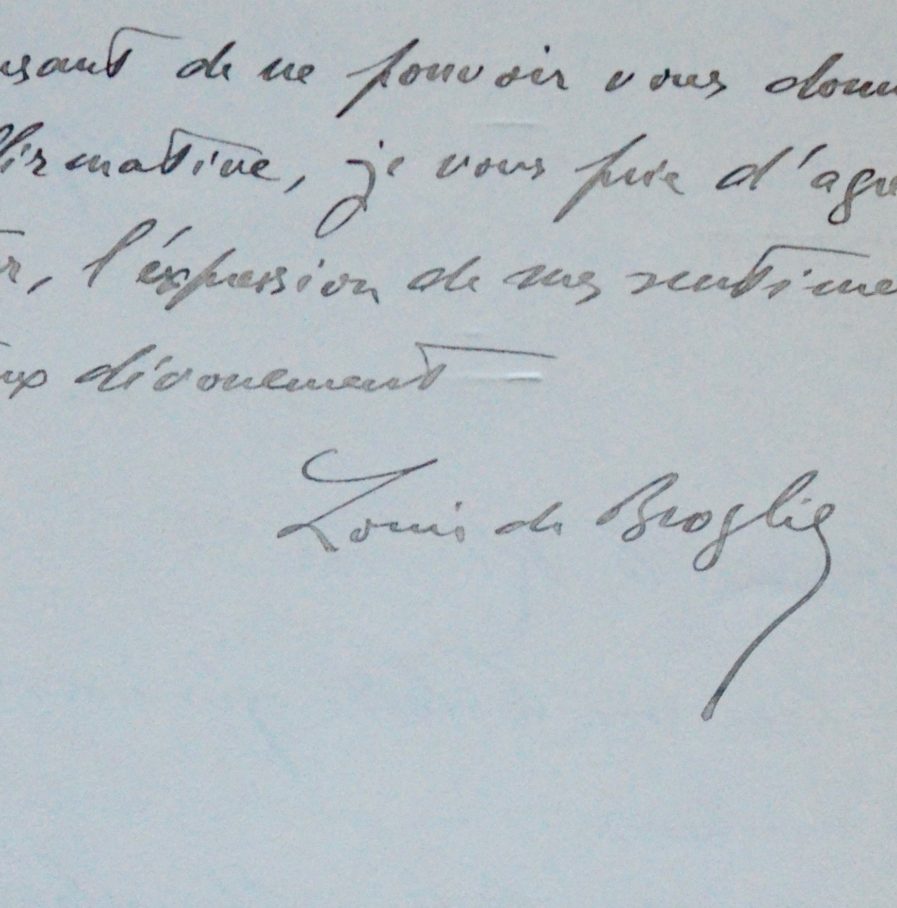 usant de ne pouvoir vous donn
ffirmative, je vous prie d'agré
r, l'expression de mes sentime
ux dévouement
Louis de Broglie